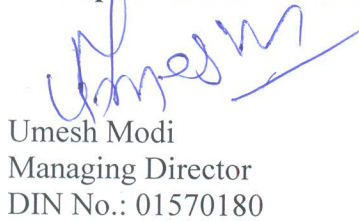 Umesh Modi
Managing Director
DIN No.: 01570180